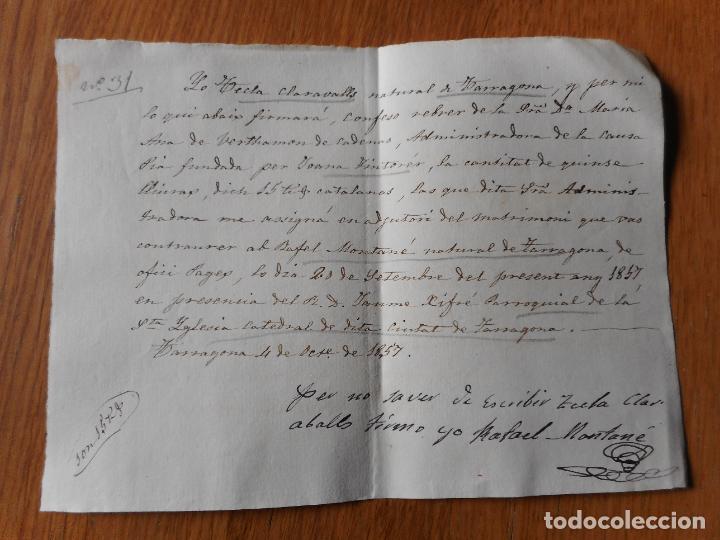 nº. 31
Yo Tecla Claravalls natural de Tarragona, y per mi
lo qui abaix firmará, confeso rebrer de la Sra. Dª. María
Ana de Verthamon de Cadenas, Administradora de la causa
Pia fundada per Joana Vintorer, la cantitat de quinse
lliuras, dich 15 catalanas, las que dita Sra. Adminis-
tradora me assigná en adjutori del matrimoni que vas
contraurer ab Rafel Montané natural de Tarragona, de
ofici Pages, lo dia 20 de Setembre del present any 1857,
en presencia del R. D. Jaume Xifré Parroquial de la
Sta. Yglesia Catedral de dita Ciutat de Tarragona.
Tarragona 4 de Ocre. de 1857.
Per no saver de Escribir Tecla Clar-
aballs firmo yo Rafael Montané
son 15
todocoleccion.net